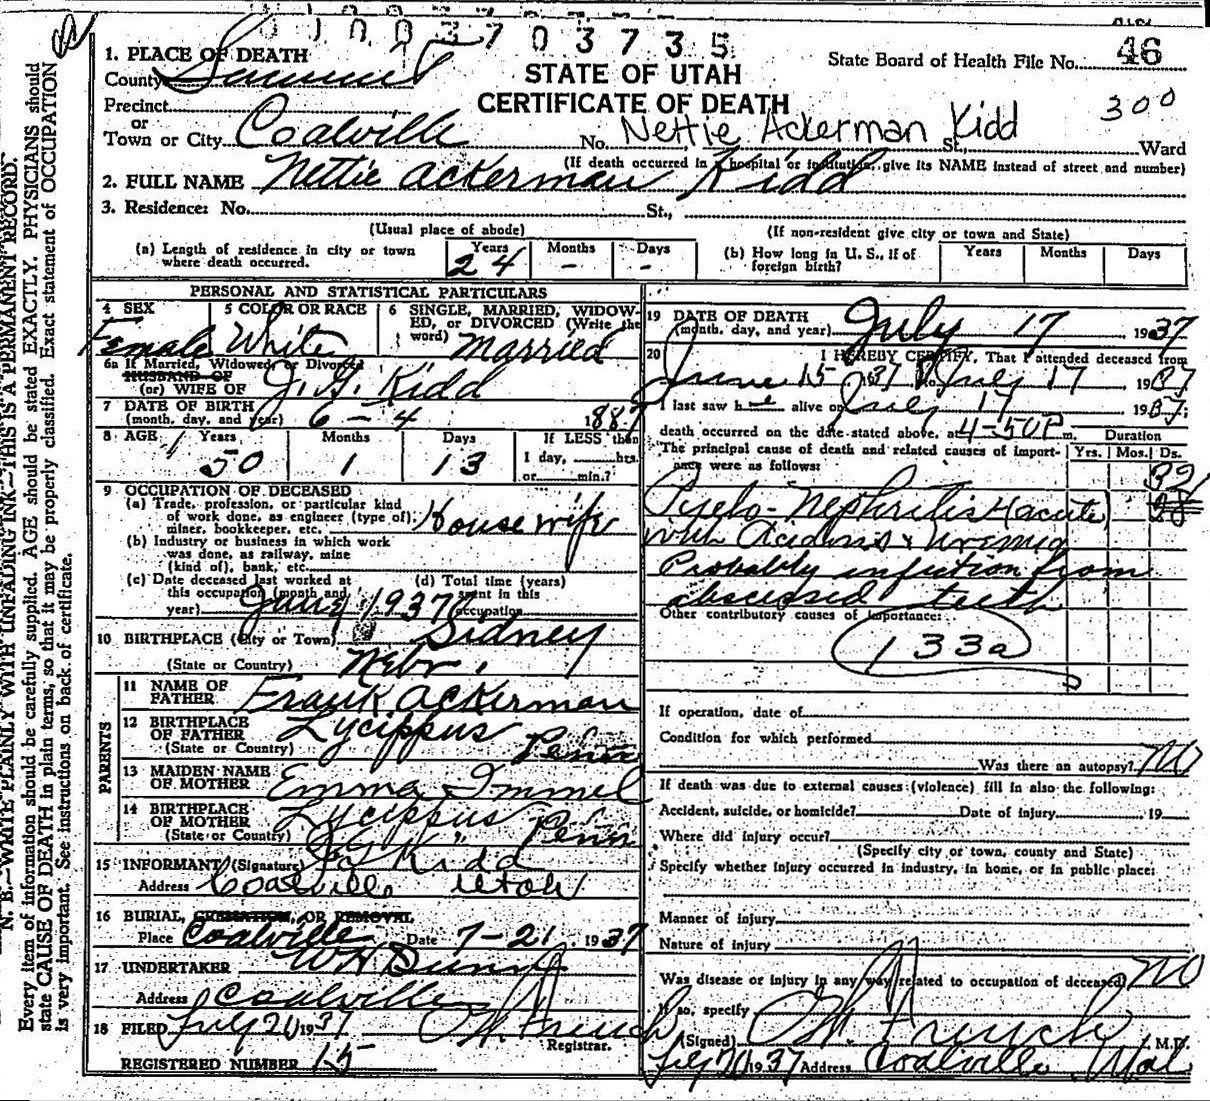 1 0 0 3 7 0 3 7 3 5
1. PLACE OF DEATH
County Summit
STATE OF UTAH
CERTIFICATE OF DEATH
State Board of Health File No. 46
300
Precinct
or
Town or City Coalville No. Nettie Ackerman Kidd St., Ward
(If death occurred in a hospital or institution, give its NAME instead of street and number)
2. FULL NAME Nettie Ackerman Kidd
3. Residence: No. St.,
(Usual place of abode) (If non-resident give city or town and State)
(a) Length of residence in city or town where death occurred. Years 24 Months - Days -
(b) How long in U. S., if of foreign birth? Years Months Days
PERSONAL AND STATISTICAL PARTICULARS
4 SEX Female
5 COLOR OR RACE White
6 SINGLE, MARRIED, WIDOWED, or DIVORCED (Write the word) Married
6a If Married, Widowed, or Divorced
HUSBAND OF
(or) WIFE OF J. G. Kidd
7 DATE OF BIRTH
(month, day, and year) 6-4 1887
8 AGE Years 50 Months 1 Days 13 If LESS than 1 day, hrs. or min.?
9 OCCUPATION OF DECEASED
(a) Trade, profession, or particular kind of work done, as engineer (type of), miner, bookkeeper, etc. Housewife
(b) Industry or business in which work was done, as railway, mine (kind of), bank, etc.
(c) Date deceased last worked at this occupation (month and year) June 1937
(d) Total time (years) spent in this occupation
10 BIRTHPLACE (City or Town) Sidney
(State or Country) Nebr.
PARENTS
11 NAME OF FATHER Frank Ackerman
12 BIRTHPLACE OF FATHER Lycippus
(State or Country) Penn
13 MAIDEN NAME OF MOTHER Emma Immel
14 BIRTHPLACE OF MOTHER Lycippus
(State or Country) Penn
15 INFORMANT (Signature) J G Kidd
Address Coalville Utah
16 BURIAL, CREMATION, OR REMOVAL
Place Coalville Date 7-21 1937
17 UNDERTAKER
Address Coalville
18 FILED July 21 1937 Registrar.
REGISTERED NUMBER 15
19 DATE OF DEATH
(month, day, and year) July 17 1937
20 I HEREBY CERTIFY, That I attended deceased from
June 15 1937 to July 17 1937
I last saw her alive on July 17 1937;
death occurred on the date stated above, at 4-50 P m. Duration
The principal cause of death and related causes of importance were as follows: Yrs. Mos. Ds.
Pyelo-Nephritis (acute)
with Acidosis & Uremia
Probably infection from
abscessed teeth
Other contributory causes of importance:
133a
If operation, date of
Condition for which performed
Was there an autopsy? No
If death was due to external causes (violence) fill in also the following:
Accident, suicide, or homicide? Date of injury 19
Where did injury occur?
(Specify city or town, county and State)
Specify whether injury occurred in industry, in home, or in public place:
Manner of injury
Nature of injury
Was disease or injury in any way related to occupation of deceased? No
If so, specify
(Signed) M.D.
1937 Address Coalville
N. B.—WRITE PLAINLY WITH UNFADING INK—THIS IS A PERMANENT RECORD.
Every item of information should be carefully supplied. AGE should be stated EXACTLY. PHYSICIANS should
state CAUSE OF DEATH in plain terms, so that it may be properly classified. Exact statement of OCCUPATION
is very important. See instructions on back of certificate.